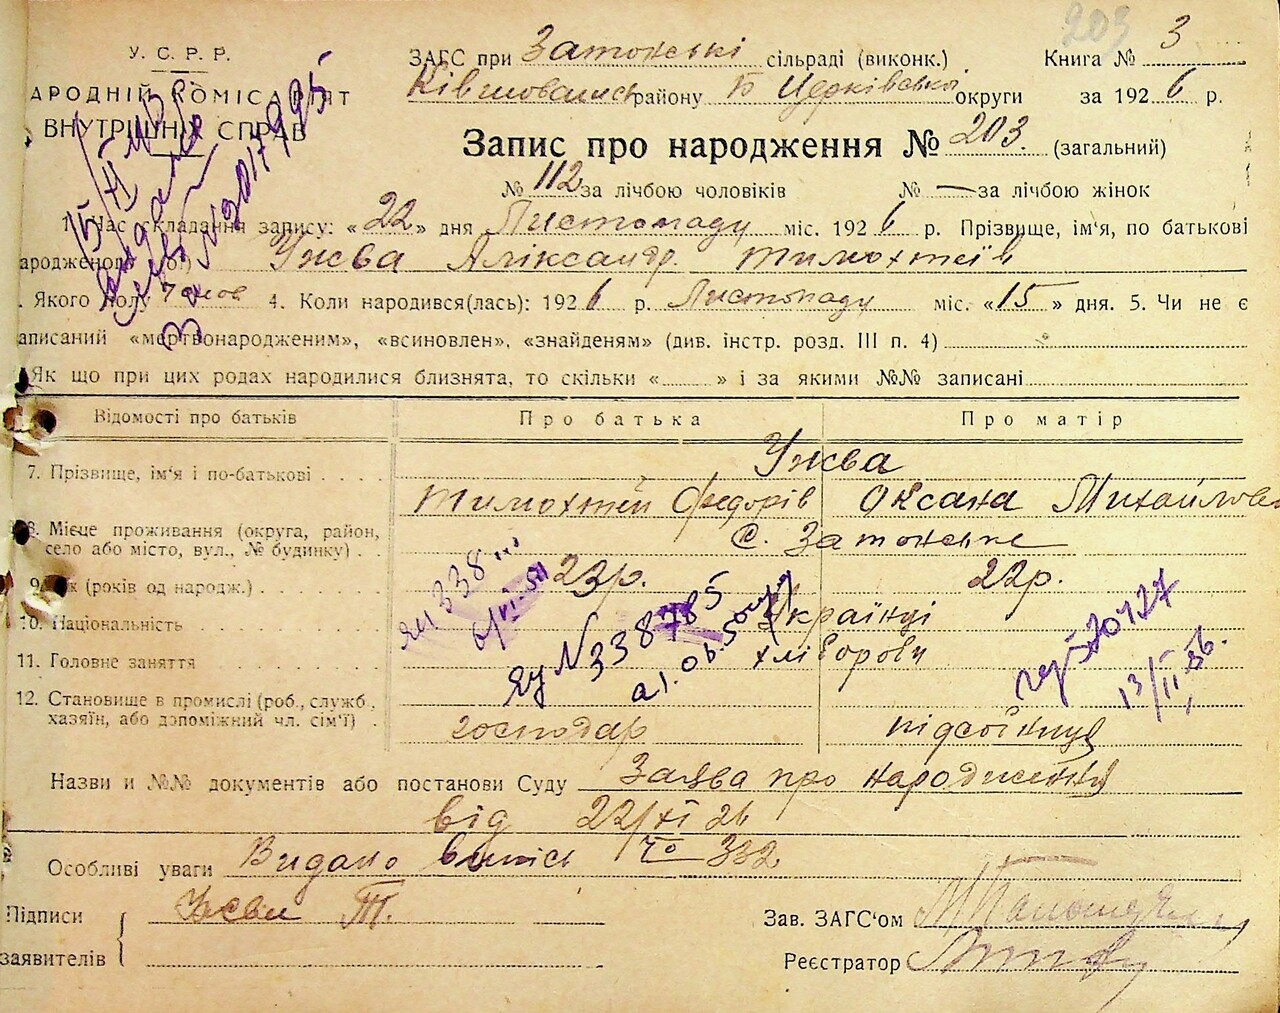 203
У. С. Р. Р.
АРОДНІЙ КОМІСАРІЯТ
ВНУТРІШНІХ СПРАВ
ЗАГС при Затонські сільраді (виконк.) Книга № 3
району Б Церківської округи за 1926 р.
Запис про народження № 203. (загальний)
№ 112 за лічбою чоловіків № — за лічбою жінок
1. Час складання запису: «22» дня Листопаду міс. 1926 р. Прізвище, ім'я, по батькові
ародженого Ужва Аліксандр. Тимохтеів
. Якого полу 4. Коли народився(лась): 1926 р. Листопаду міс. «15» дня. 5. Чи не є
аписаний «мертвонародженим», «всиновлен», «знайденям» (див. інстр. розд. III п. 4)
Як що при цих родах народилися близнята, то скільки « » і за якими №№ записані
Відомості про батьків Про батька Про матір
7. Прізвище, ім'я і по-батькові Ужва
Тимохтей Федорів Оксана Михайлов
8. Місце проживання (округа, район, село або місто, вул., № будинку) С. Затонське
9. (років од народж.) 23р. 22р.
10. Національність Українці
11. Головне заняття хлібороби
12. Становище в промислі (роб., служб., хазяїн, або допоміжний чл. сім'ї)
господар
Назви и №№ документів або постанови Суду Заява про народження
від 22/XI 26
Особливі уваги Видано випіс 332
Підписи Ужви Т.
заявителів
Зав. ЗАГС'ом
Реєстратор
15/XI
видано
№ 2017995
338
N 338785
13/II 36.